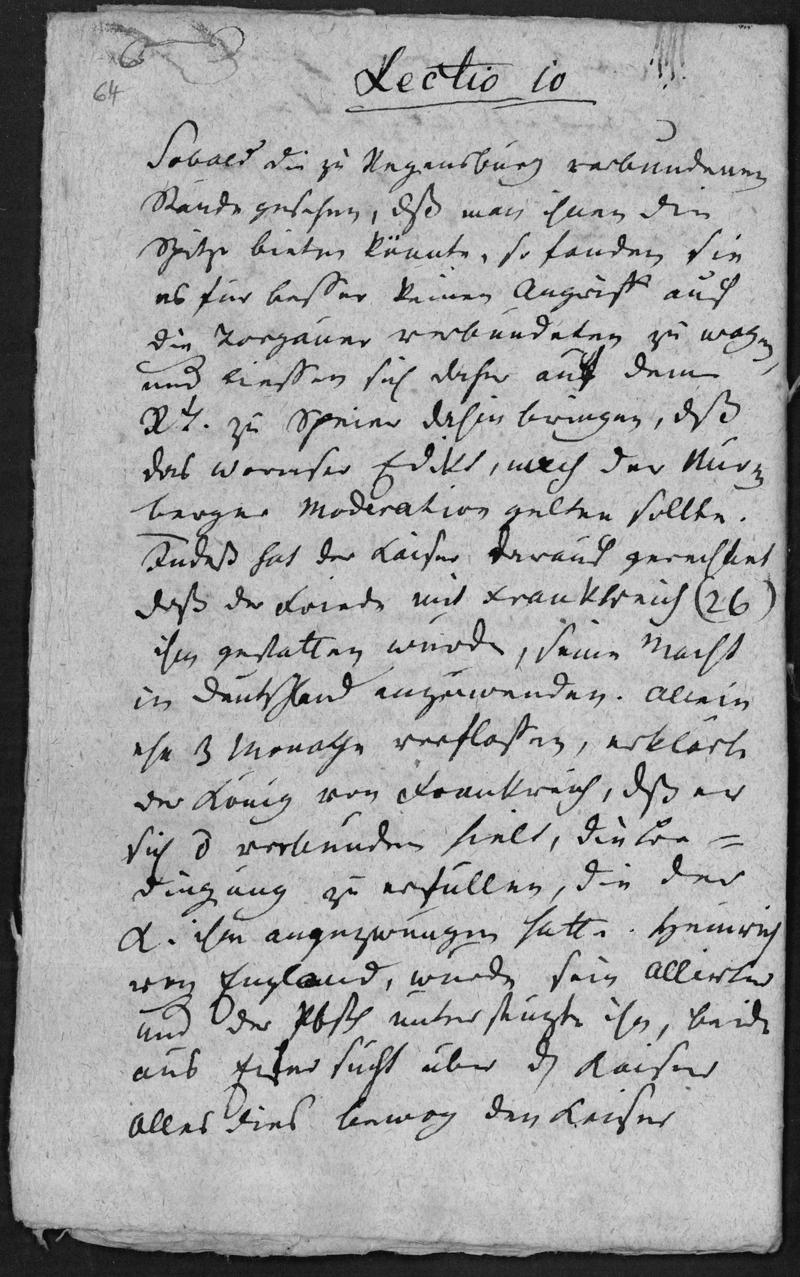 64
Lectio 10
Sobald die zu Regensburg verbundenen
Stände gesehen, dß man ihnen die
Spitze bieten könnte, so fanden sie
es für besser keinen Angriff auf
die Torgauer verbündeten zu wagen,
und liessen sich daher auf dem
Rt. zu Speier dahin bringen, dß
das wormser Edikt, nach der Nürn
berger Moderation gelten sollte.
Indeß hat der Kaiser darauf gerechnet
daß der Friede mit Frankreich (26)
ihm gestatten würde, seine Macht
in Deutschland anzuwenden. Allein
ehe 3 Monathe verflossen, erklärte
der König von Frankreich, dß er
sich verbunden hielt, die Be=
dingung zu erfüllen, die der
K. ihm angezwungen hatte. Heinrich
von England, wurde sein Allierter
und der Pbst unterstüzte ihn, beide
aus Eifersucht über d Kaiser
Alles dies bewog den Kaiser